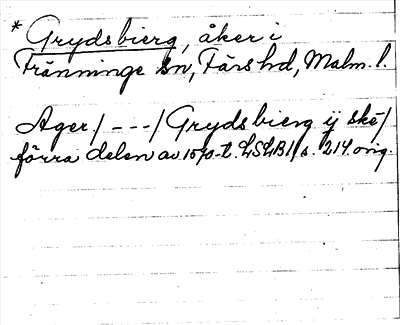 * Grydsbierg, åker i
Tränninge sn, Färs hd, Malm. l.
Ager / --- / Grydsbierg ij ske /
förra delen av 1570-t. LSLB 1 s. 214 orig.